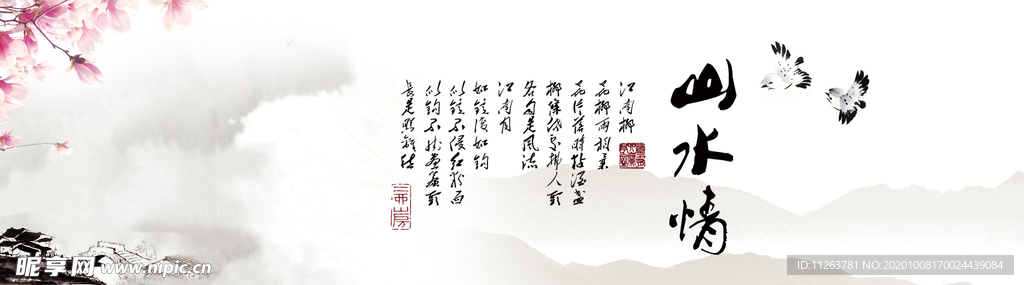 山水情
江南柳
花柳两相柔
花片落时黏酒盏
柳条低处拂人头
各自是风流
江南月
如镜复如钩
似镜不侵红粉面
似钩不挂画帘头
长是照离愁
昵享网 www.nipic.cn
ID:11263781 NO:20201008170024439084